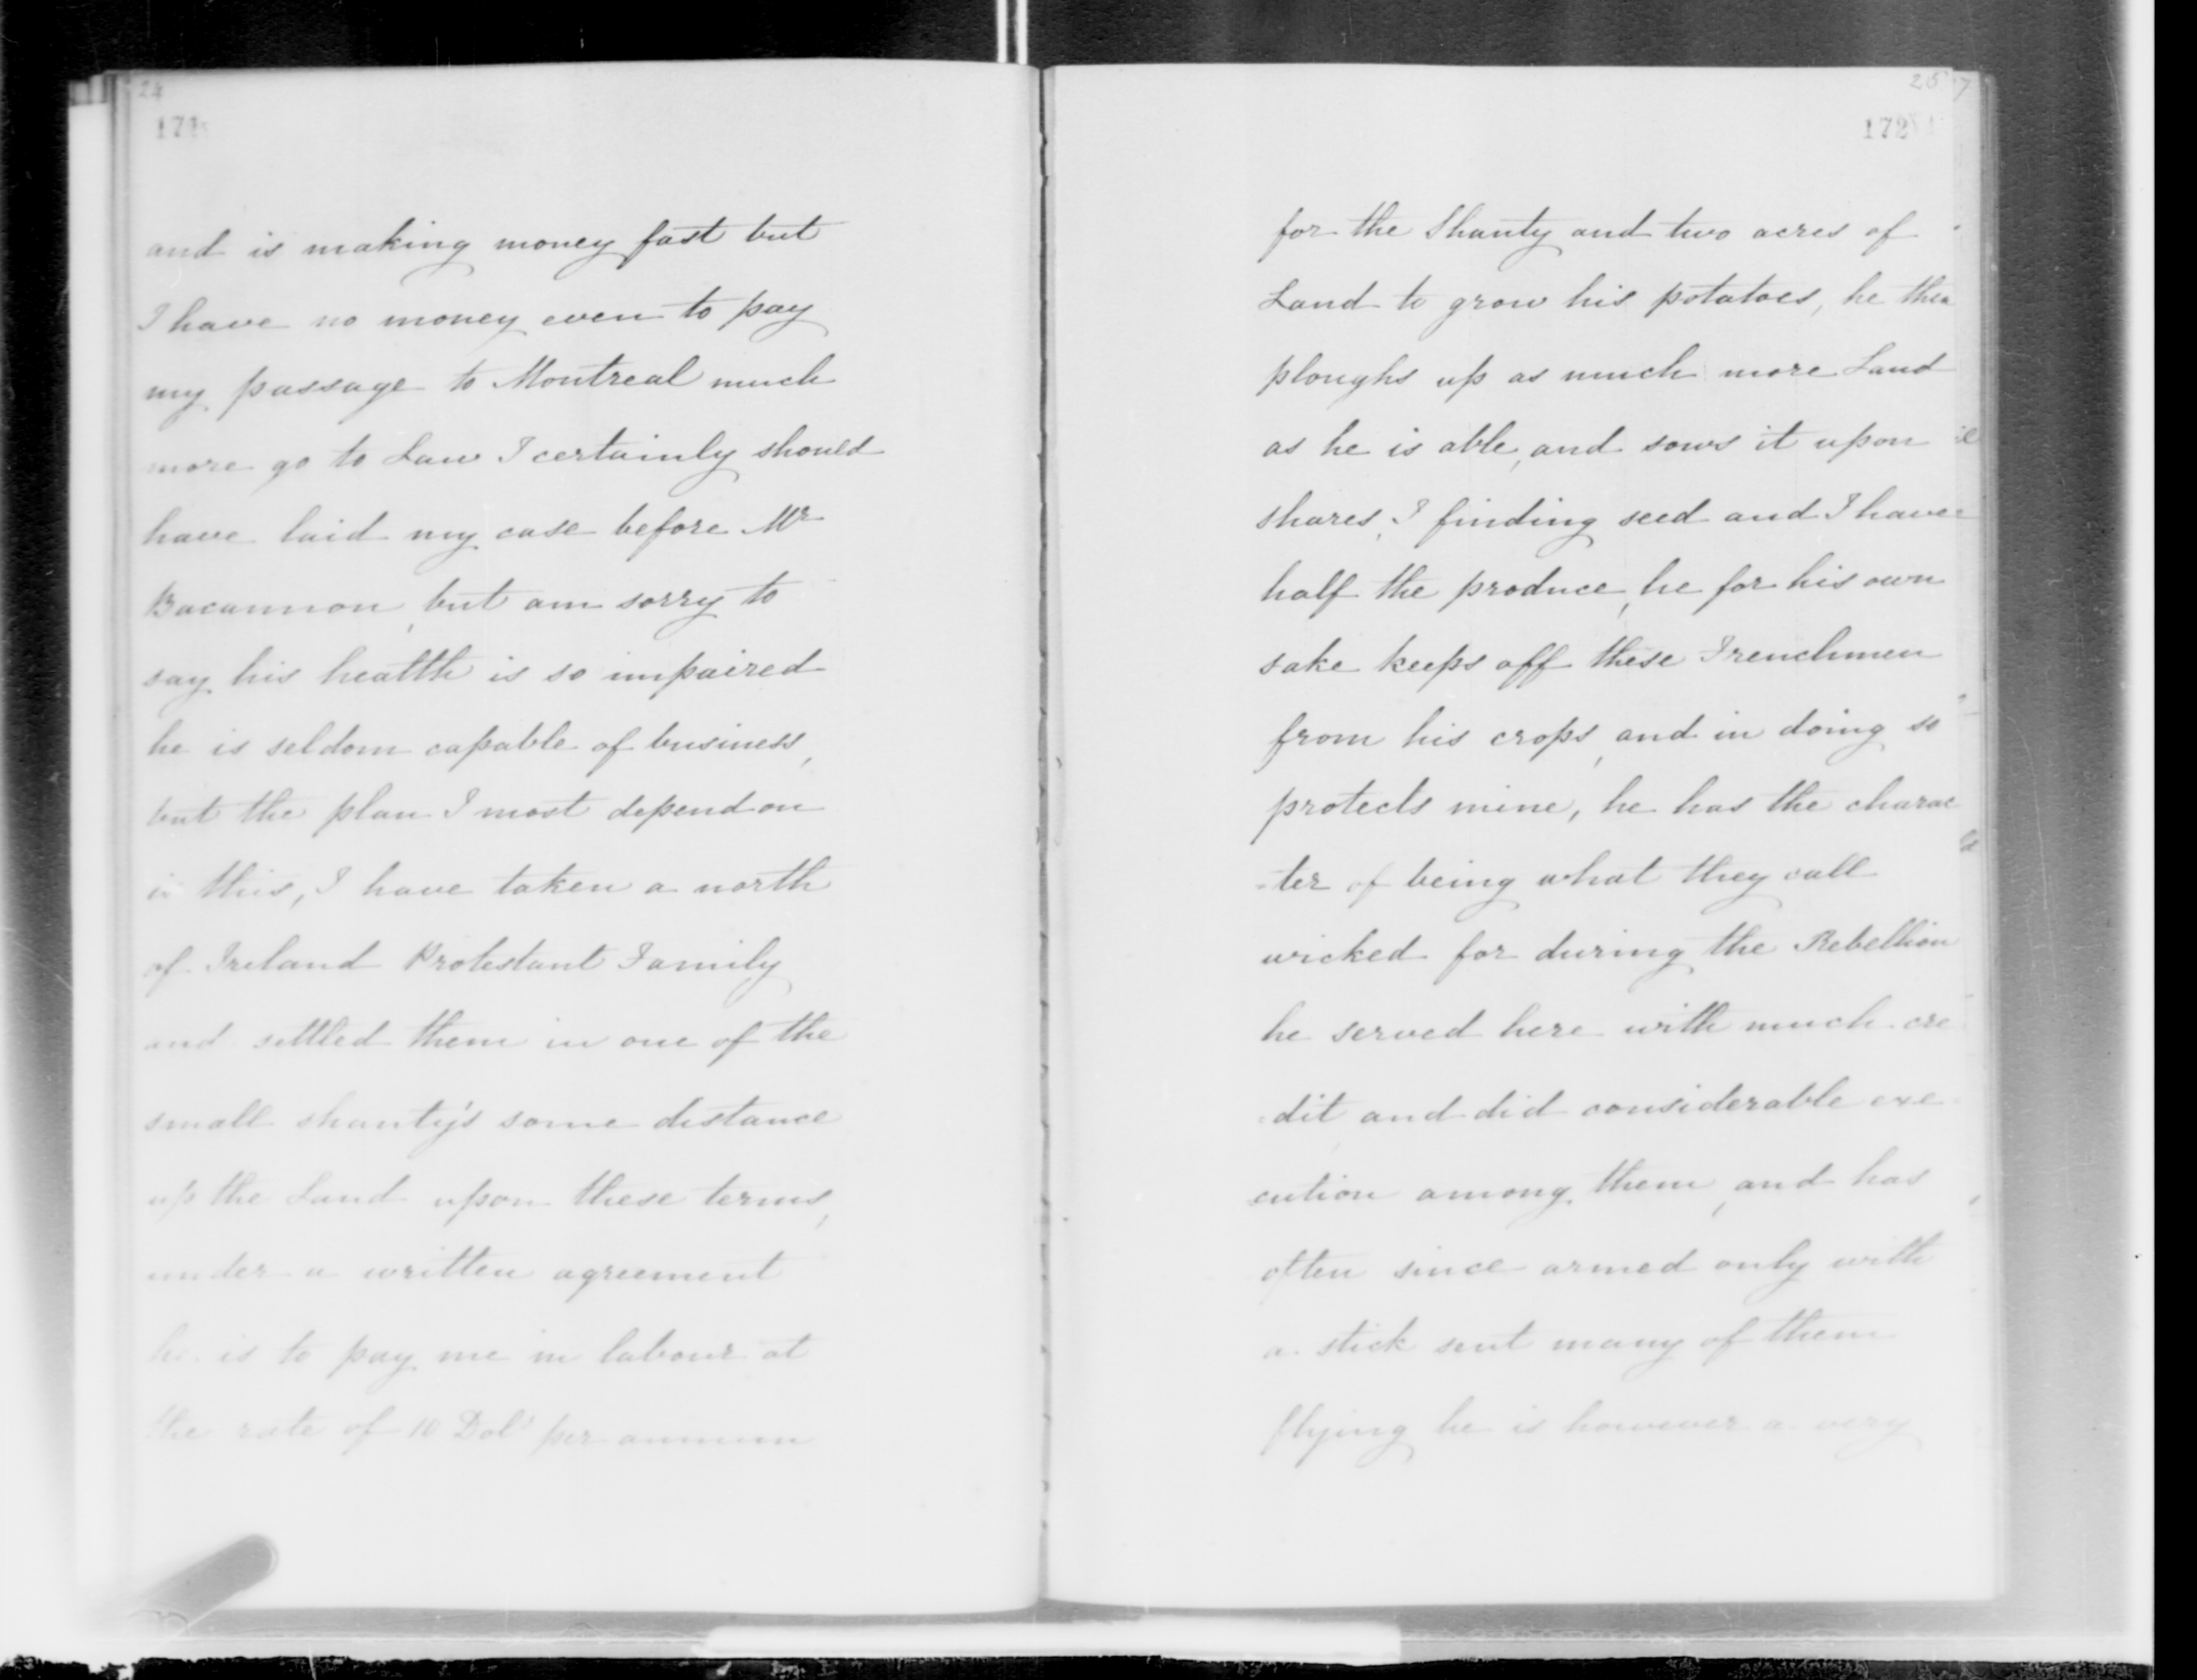 24
171
and is making money fast but
I have no money even to pay
my passage to Montreal much
more go to Law I certainly should
have laid my case before Mr
Bacannon, but am sorry to
say his health is so impaired
he is seldom capable of business,
but the plan I most depend on
is this, I have taken a north
of Ireland Protestant Family
and settled them in one of the
small shanty's some distance
up the Land upon these terms,
under a written agreement
he is to pay me in labour at
the rate of 10 Dols per annum
25
172
for the Shanty and two acres of
Land to grow his potatoes, he then
ploughs up as much more Land
as he is able, and sows it upon
shares, I finding seed and I have
half the produce, he for his own
sake keeps off these Frenchmen
from his crops, and in doing so
protects mine, he has the charac
=ter of being what they call
wicked for during the Rebellion
he served here with much cre
=dit and did considerable exe
cution among them, and has
often since armed only with
a stick sent many of them
flying he is however a very